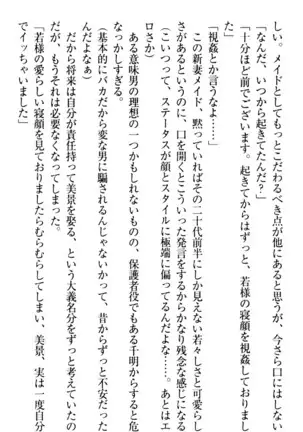 しい。メイドとしてもっとこだわるべき点が他にあると思うが、今さら口にはしない。
「なんだ、いつから起きてたんだ？」
「十分ほど前でございます。起きてからはずっと、若様の寝顔を視姦しておりました」
「視姦とか言うなよな……」
この新妻メイド、黙っていればその二十代前半にしか見えない若々しさと可愛らしさがあるというのに、口を開くとこういった発言をするからかなり残念な感じになる。
（こいつって、ステータスが顔とスタイルに極端に偏ってるんだよな……。あとはエロさか）
ある意味男の理想の一つかもしれないものの、保護者役でもある千明からすると危なっかしすぎる。
（基本的にバカだから変な男に騙されるんじゃないかって、昔からずっと不安だったんだよなぁ）
だから将来は自分が責任持って美景を娶る、という大義名分をずっと考えていたのだが、もうそれは必要なくなってしまった。
「若様の愛らしい寝顔を見ておりましたらむらむらしてしまい、美景、実は一度自分でイッちゃいました」